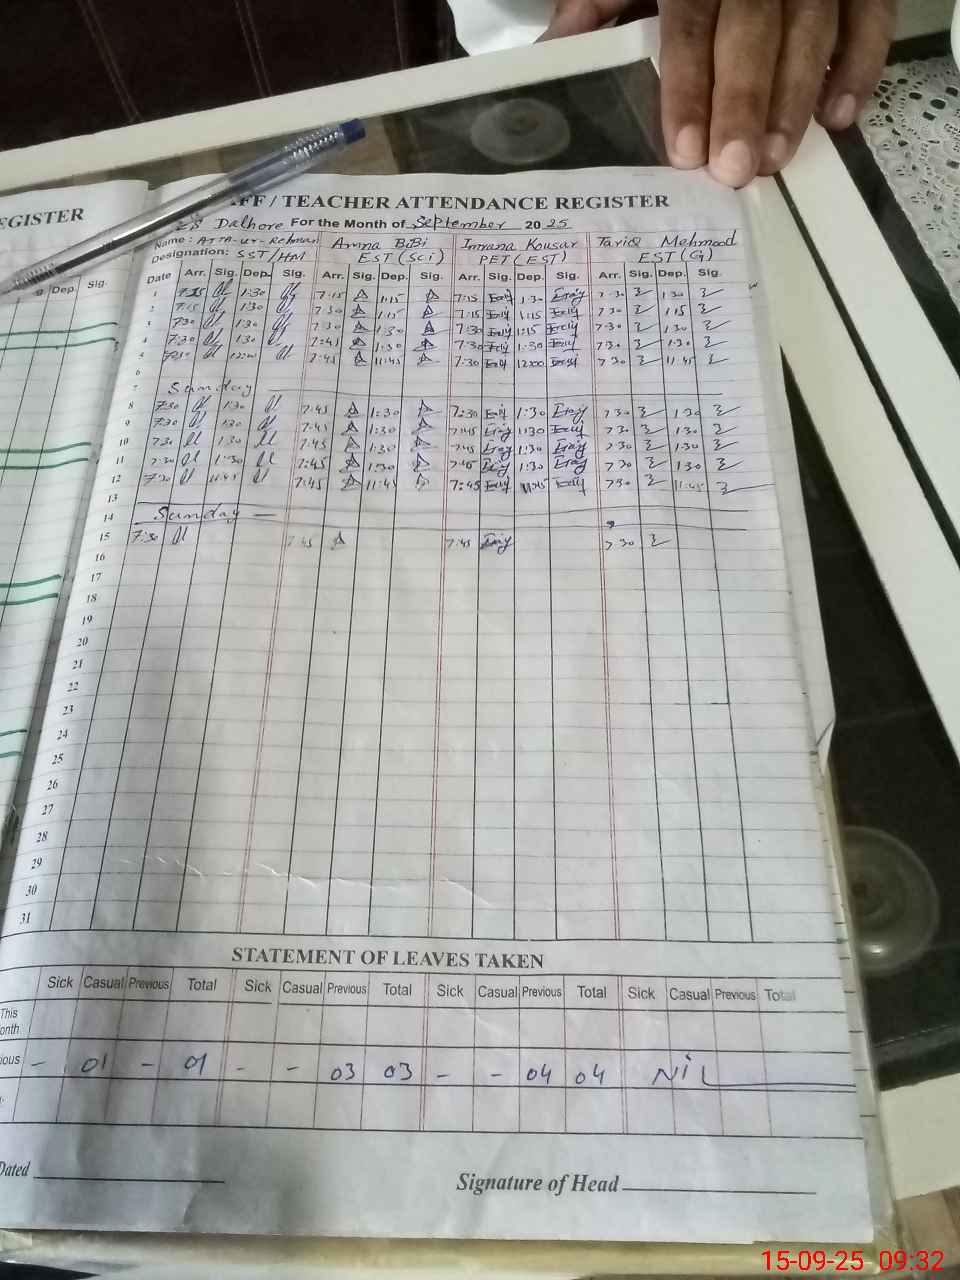 EGISTER
FF / TEACHER ATTENDANCE REGISTER
ES Dalhore For the Month of September 2025
Name: ATTA-ur-Rehman Amna BiBi Imrana Kousar Tariq Mehmood
Designation: SST/HM EST (Sci) PET (EST) EST (G)
g. Dep. Sig. Date Arr. Sig. Dep. Sig. Arr. Sig. Dep. Sig. Arr. Sig. Dep. Sig. Arr. Sig. Dep. Sig.
1 7:15 1:30 7:15 1:15 7:15 1:30 7:30 1:30
2 7:15 1:30 7:30 1:15 7:15 1:15 7:30 1:15
3 7:30 1:30 7:30 1:30 7:30 1:15 7:30 1:30
4 7:30 1:30 7:45 1:30 7:30 1:30 7:30 1:30
5 7:45 11:45 7:30 12:00 7:30 11:45
6
7 Sunday
8 7:30 1:30 7:45 1:30 7:30 1:30 7:30 1:30
9 7:30 1:30 7:45 1:30 7:45 1:30 7:30 1:30
10 7:30 1:30 7:45 1:30 7:45 1:30 7:30 1:30
11 7:30 1:30 7:45 1:30 7:45 1:30 7:30 1:30
12 7:30 11:45 7:45 11:45 7:45 11:45 7:30 11:45
13
14 Sunday
15 7:30 7:45 7:45 7:30
16
17
18
19
20
21
22
23
24
25
26
27
28
29
30
31
STATEMENT OF LEAVES TAKEN
Sick Casual Previous Total Sick Casual Previous Total Sick Casual Previous Total Sick Casual Previous Total
This
onth
ious - 01 - 01 - - 03 03 - - 04 04 NiL
Dated
Signature of Head
15-09-25 09:32